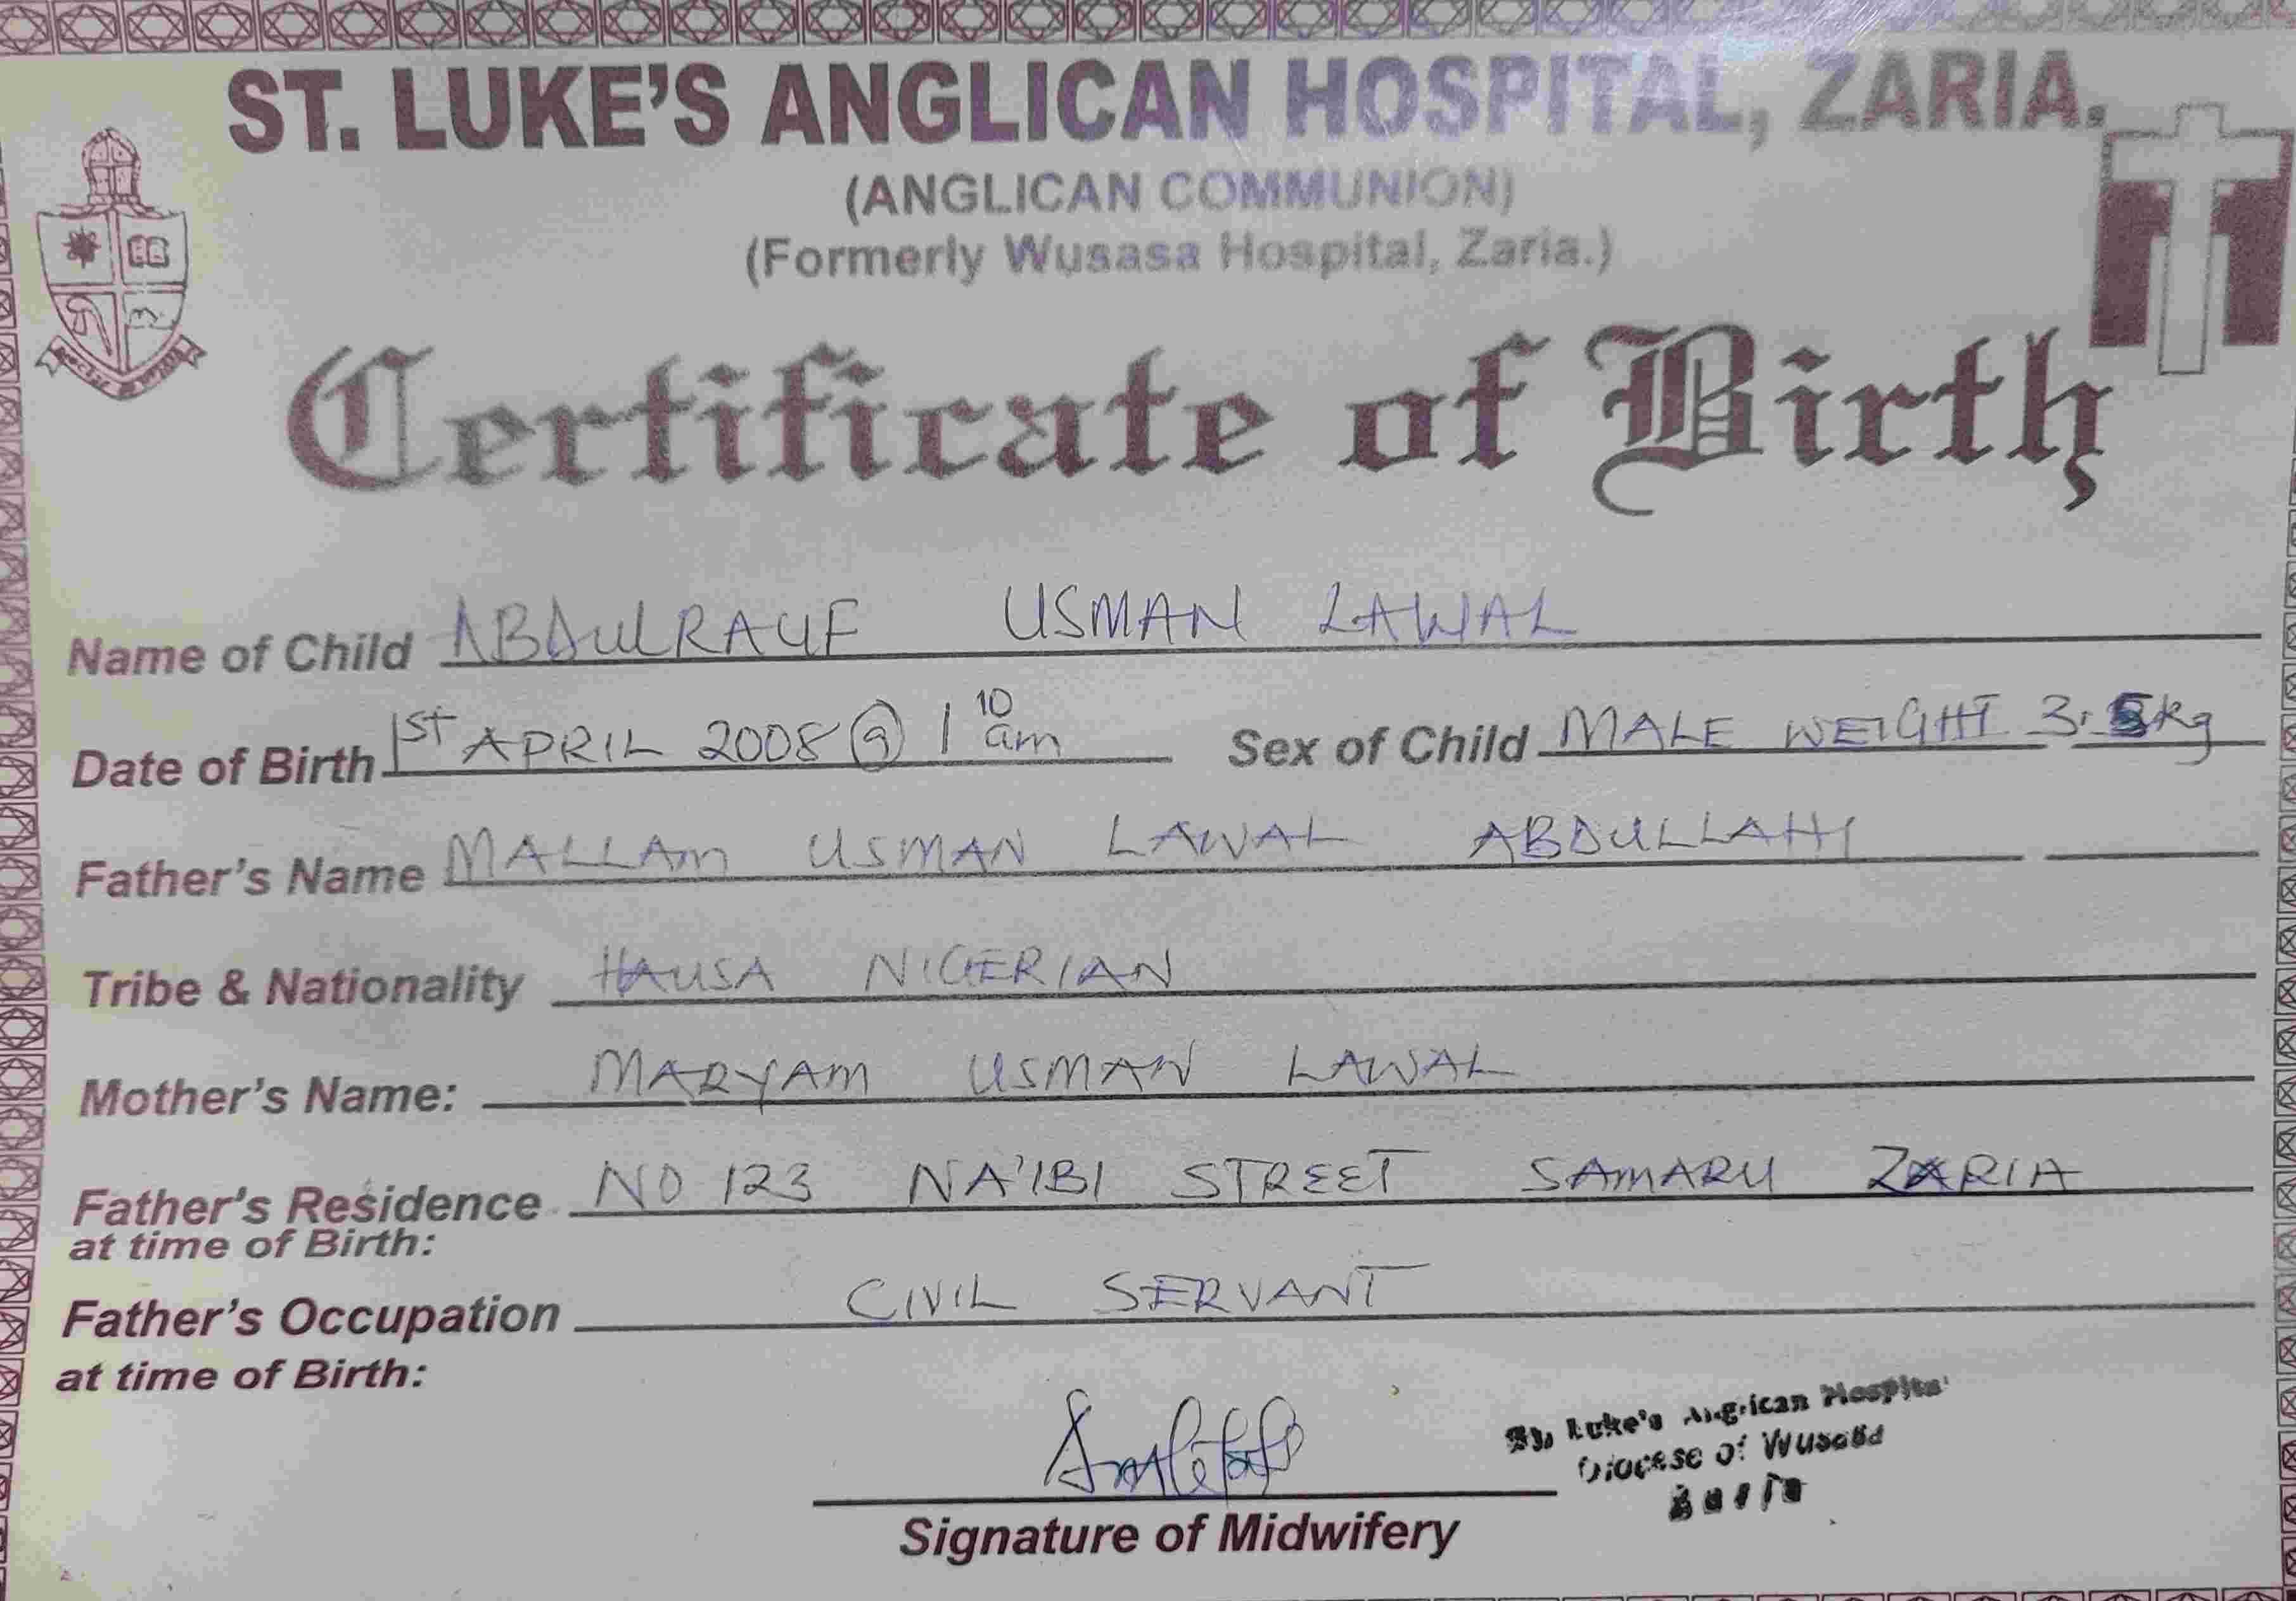 ST. LUKE'S ANGLICAN HOSPITAL, ZARIA.
(ANGLICAN COMMUNION)
(Formerly Wusasa Hospital, Zaria.)
Certificate of Birth
Name of Child ABDULRAUF USMAN LAWAL
Date of Birth 1st APRIL 2008 @ 1 10 am Sex of Child MALE WEIGHT 3.5kg
Father's Name MALLAM USMAN LAWAL ABDULLAHI
Tribe & Nationality HAUSA NIGERIAN
Mother's Name: MARYAM USMAN LAWAL
Father's Residence NO 123 NA'IBI STREET SAMARU ZARIA
at time of Birth:
Father's Occupation CIVIL SERVANT
at time of Birth:
St. Luke's Anglican Hospital
Diocese of Wusasa
Zaria
Signature of Midwifery